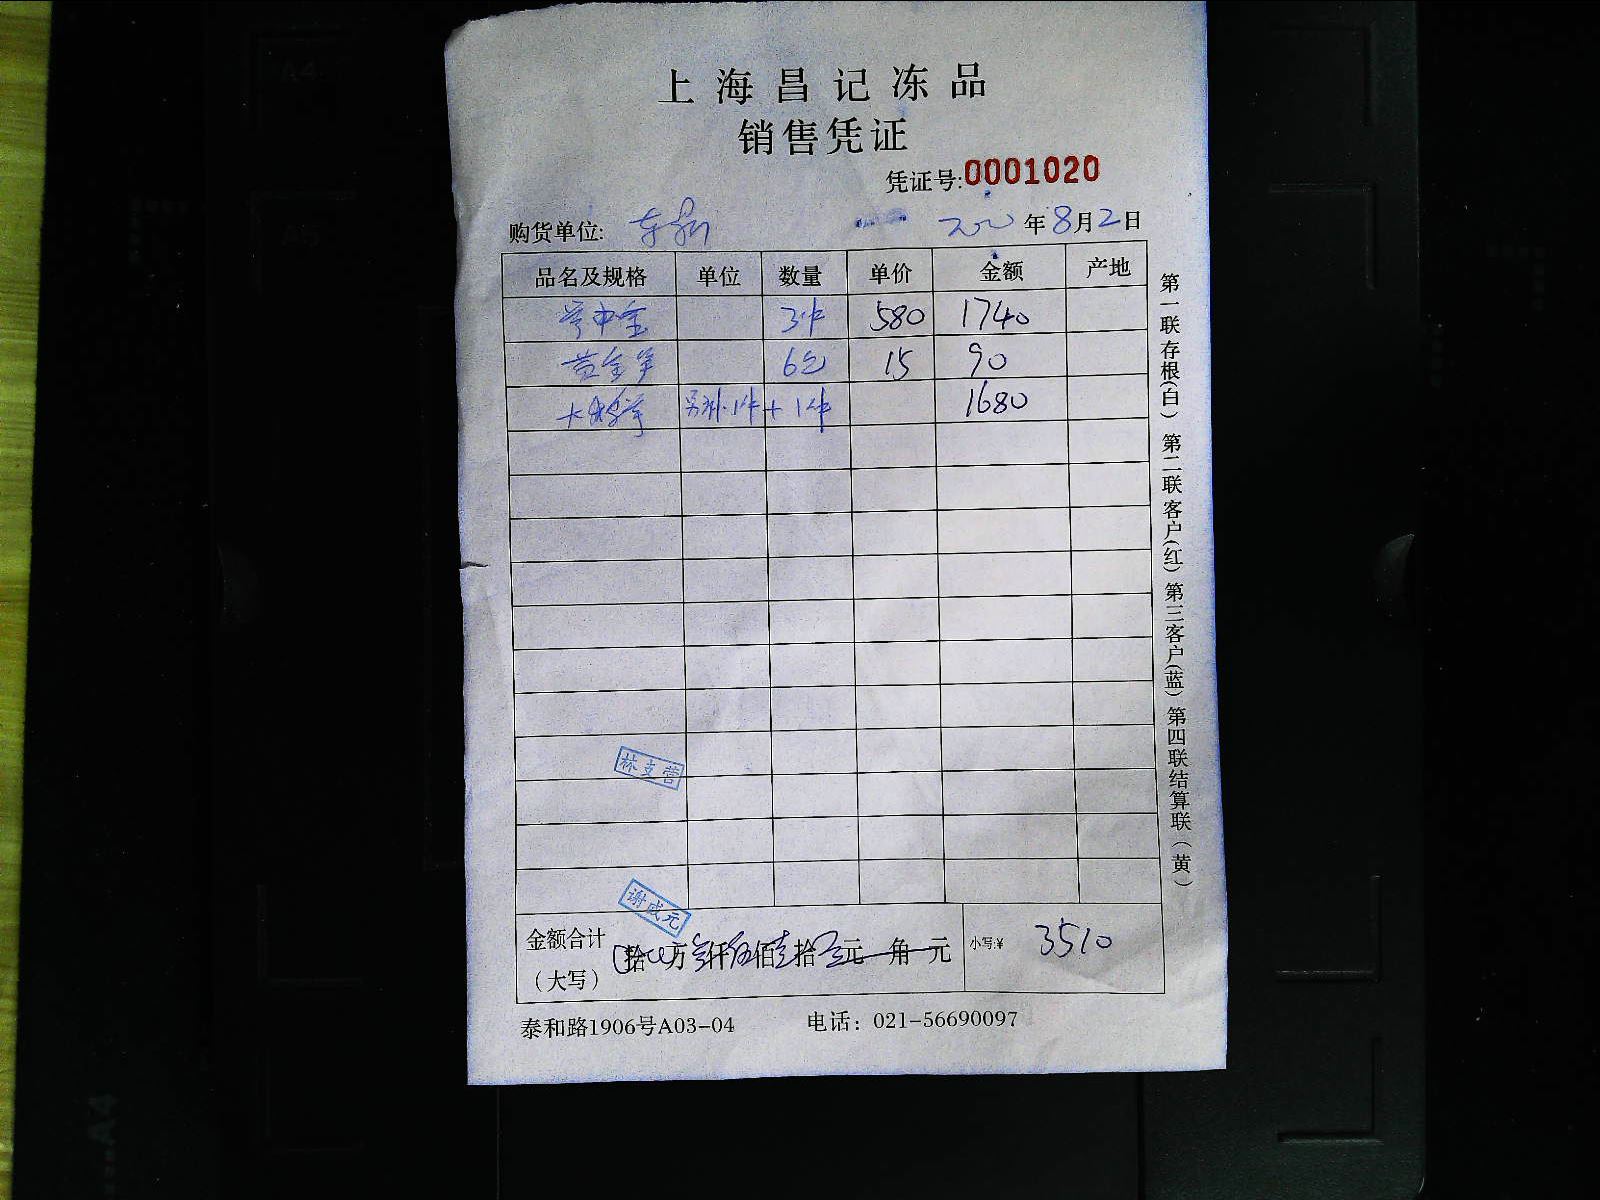 上海昌记冻品
销售凭证
凭证号:0001020
购货单位: 年8月2日
品名及规格 单位 数量 单价 金额 产地
3件 580 1740
黄金笋 6包 15 90
另补.1件 + 1件 1680
林支营
谢成元
金额合计
(大写) 拾 万叁仟伍佰壹拾 元 角 元 小写:¥ 3510
泰和路1906号A03-04 电话：021-56690097
第一联存根(白) 第二联客户(红) 第三客户(蓝) 第四联结算联(黄)
A4
A5
A4